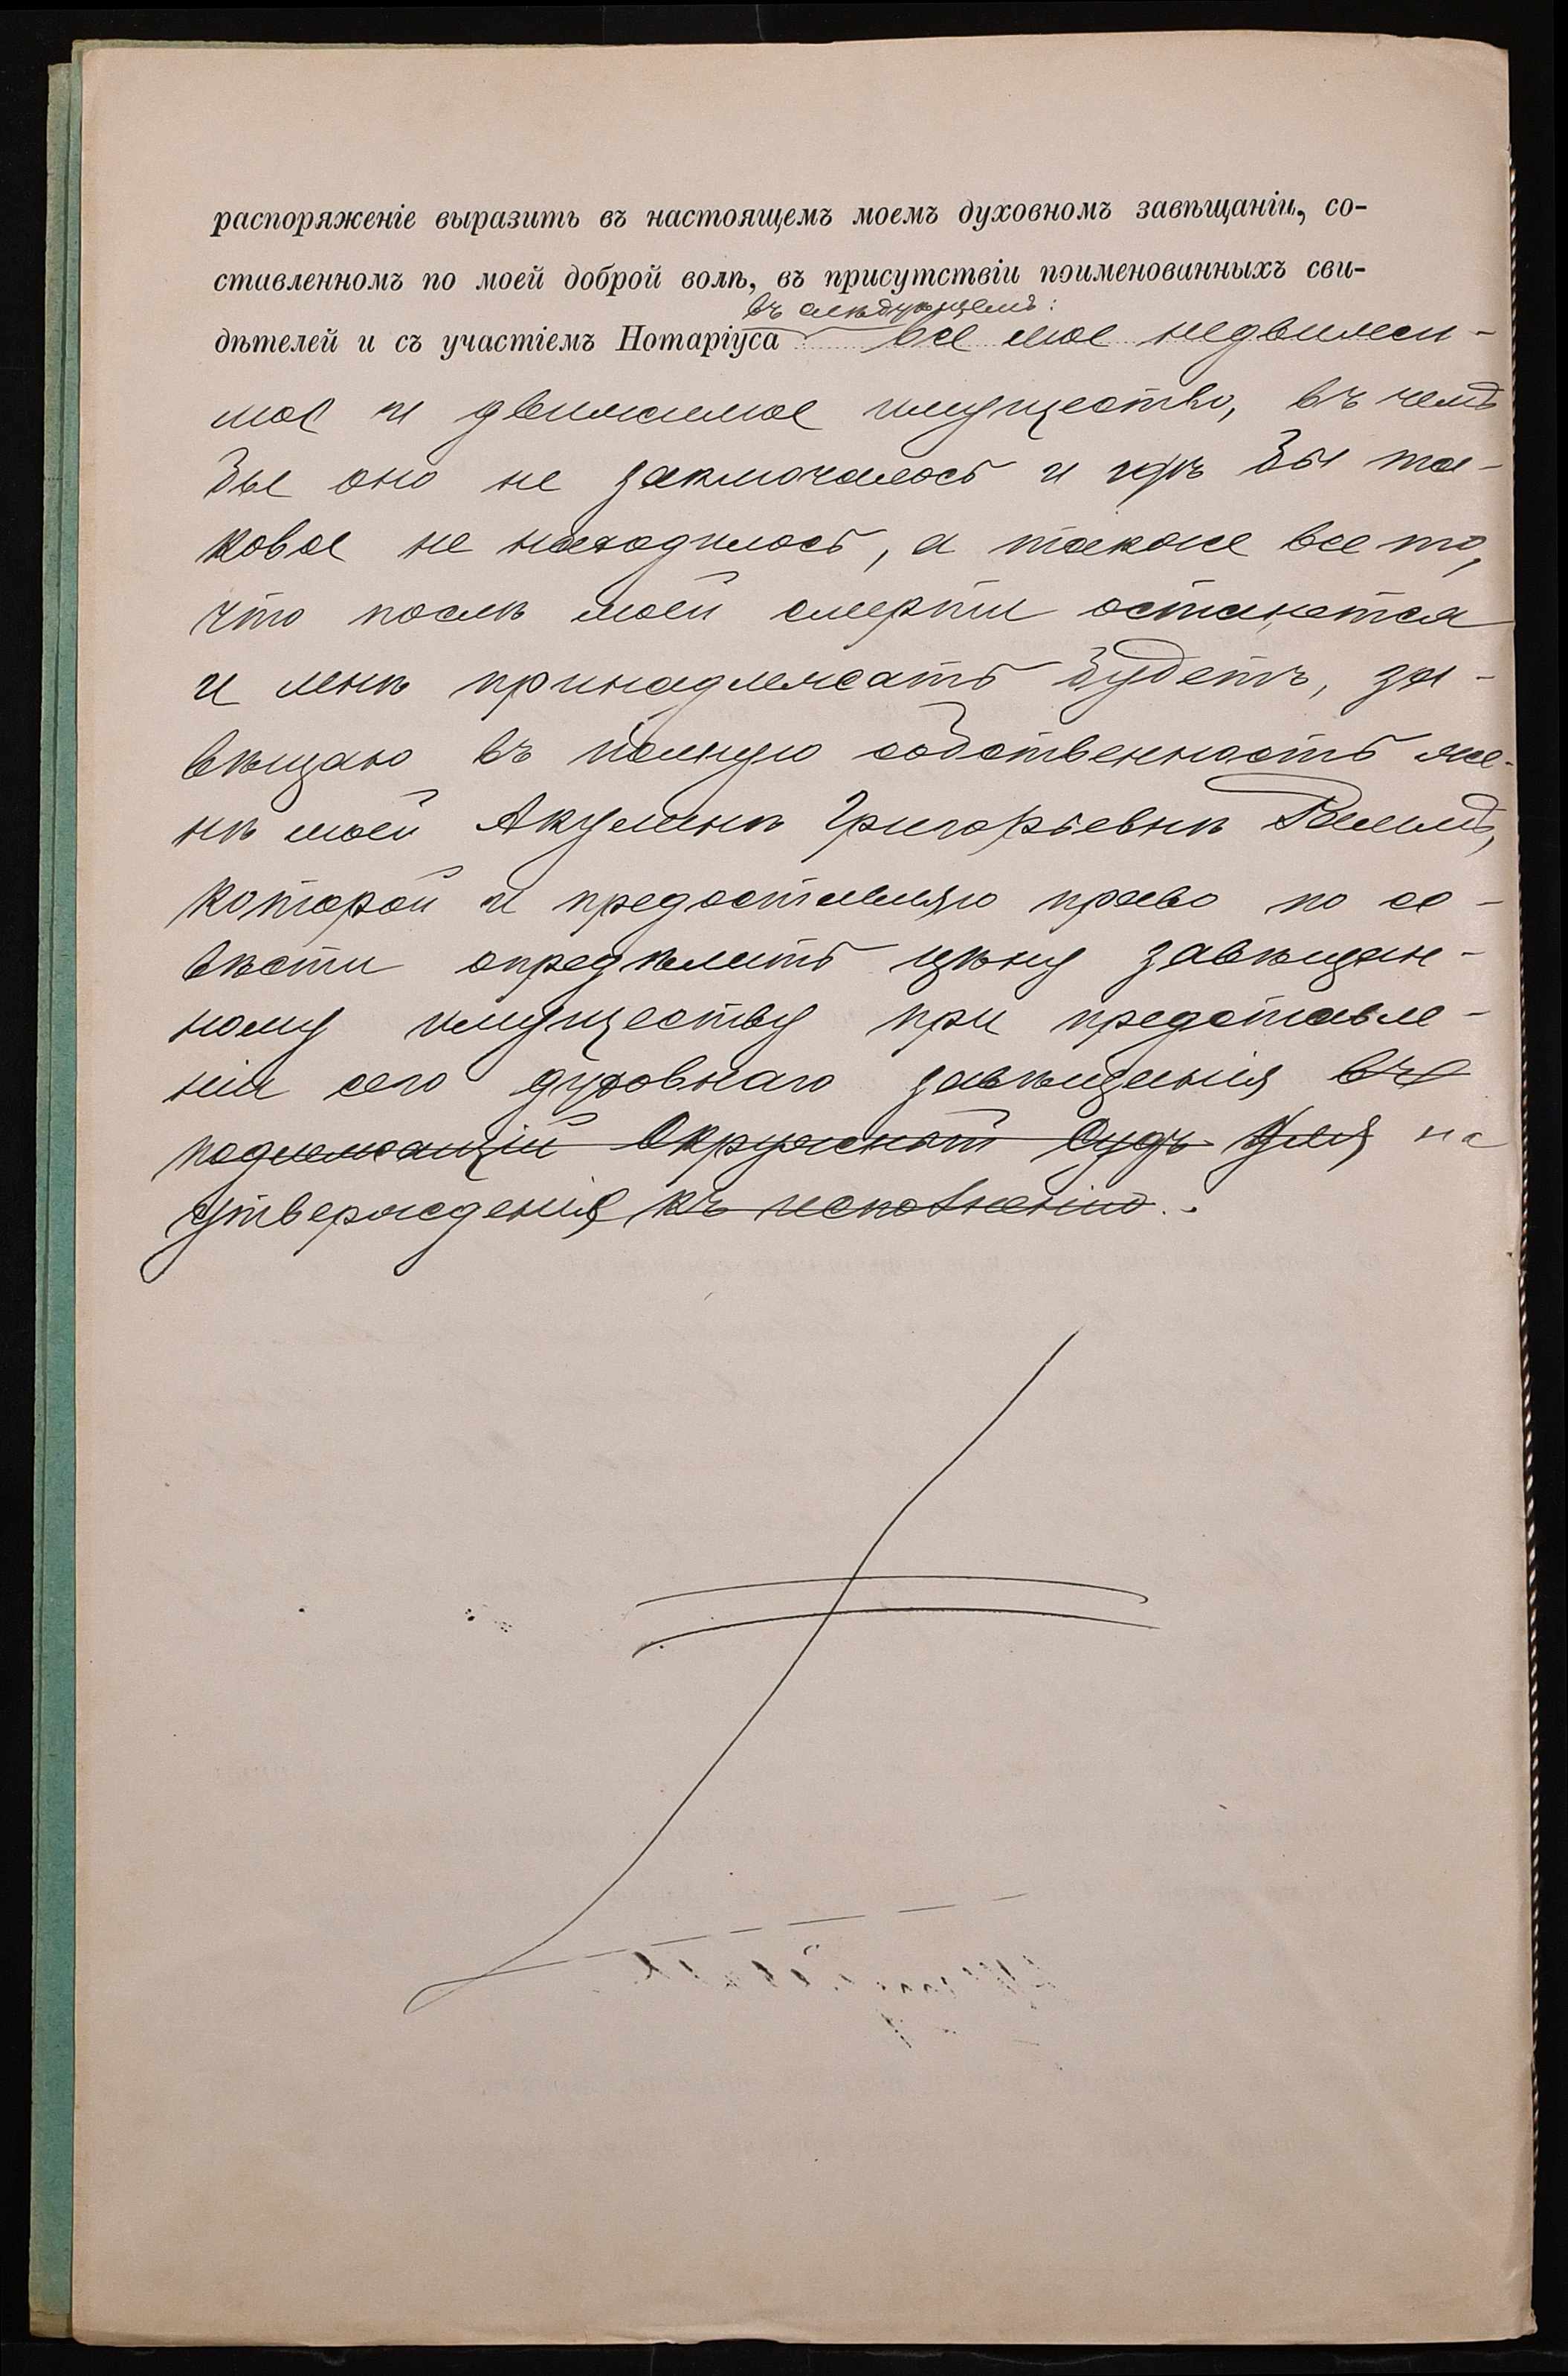 распоряженіе выразить въ настоящемъ моемъ духовномъ завѣщаніи, со-
ставленномъ по моей доброй волѣ, въ присутствіи поименованныхъ сви-
въ слѣдующемъ:
дѣтелей и съ участіемъ Нотаріуса все мое недвижи-
мое и движимое имущество, въ чемъ
бы оно не заключалось и гдѣ бы та-
ковое не находилось, а также все то,
что послѣ моей смерти останется
и мнѣ принадлежать будетъ, за-
вѣщаю въ полную собственность же-
нѣ моей Акулинѣ Григорьевнѣ
которой и предоставляю право по со-
вѣсти опредѣлить цѣну завѣщан-
ному имуществу при представле-
ніи сего духовнаго завѣщанія въ
подлежащій Окружный Судъ для на
утвержденія къ исполненію.